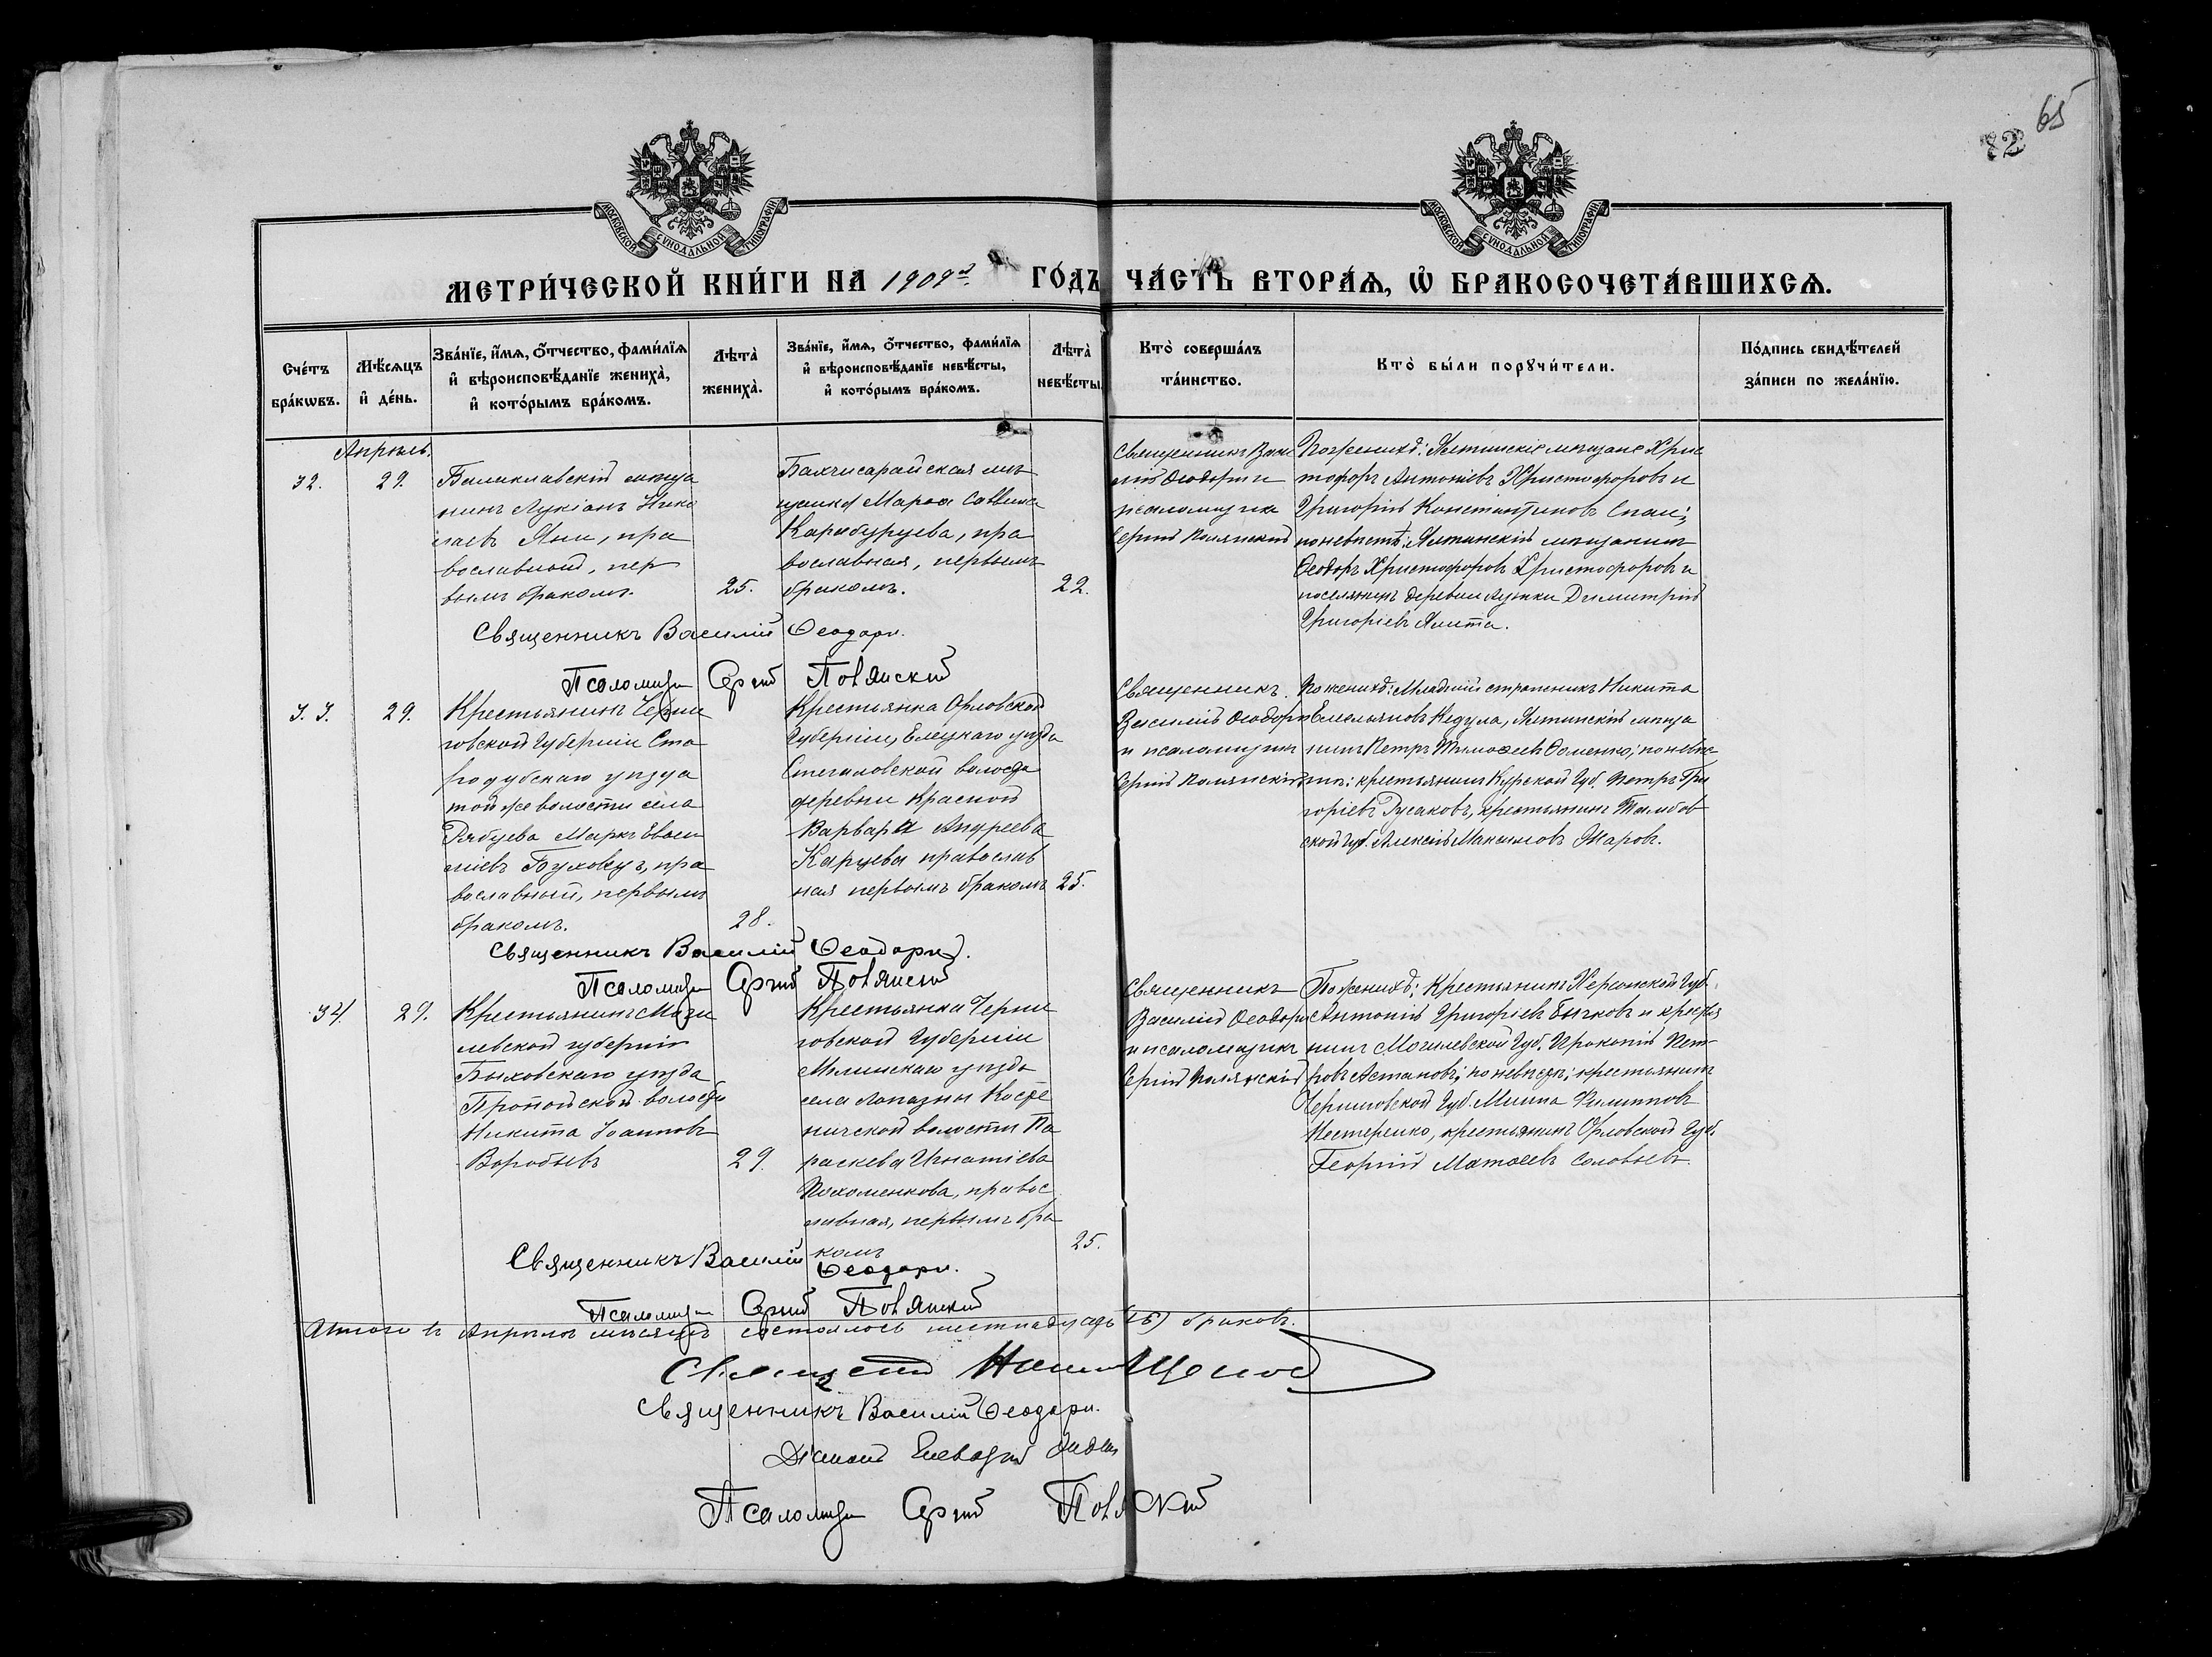 65
72
МОСКОВСКОЙ СѴНОДАЛЬНОЙ ТИПОГРАФІИ
МОСКОВСКОЙ СѴНОДАЛЬНОЙ ТИПОГРАФІИ
МЕТРИ́ЧЕСКОЙ КНИ́ГИ НА 1909й ГО́ДЪ ЧА́СТЬ ВТОРА́Ѧ, Ѽ БРАКОСОЧЕТА́ВШИХСѦ.
Сче́тъ
бра́кѡвъ.
Мѣ́сѧцъ
и҆ де́нь.
Зва́нїе, и҆́мѧ, ѻ҆́тчество, фами́лїѧ
и҆ вѣроисповѣ́данїе жениха̀,
и҆ кото́рымъ бра́комъ.
Лѣ́та̀
жениха̀.
Зва́нїе, и҆́мѧ, ѻ҆́тчество, фами́лїѧ
и҆ вѣроисповѣ́данїе невѣ́сты,
и҆ кото́рымъ бра́комъ.
Лѣ́та̀
невѣ́сты.
Кто̀ соверша́лъ
та́инство.
Кто̀ бы́ли порꙋчи́тели.
По́дпись свидѣ́телей
за́писи по жела́нїю.
Апрѣль.
32.
29.
Балаклавскій мѣща
нинъ Лукіанъ Нико
лаевъ Яни, пра
вославный, пер
вымъ бракомъ.
25.
Бахчисарайская мѣ
щанка Марѳа Саввина
Карабуруева, пра
вославная, первымъ
бракомъ.
22.
Священникъ Васи
лій Ѳеодори и
псаломщикъ
Сергій Полянскій
По женихѣ: Ялтинскіе мѣщане Хрис
тофоръ Антоніевъ Христофоровъ и
Григорій Константиновъ Спаи;
по невѣстѣ: Ялтинскій мѣщанинъ
Ѳеодоръ Христофоровъ Христофоровъ и
поселянинъ деревни Аутки Димитрій
Григоріевъ Ялита.
Священникъ Василій Ѳеодори.
Псаломщи Сергій Полянскій
33.
29.
Крестьянинъ Черни
говской Губерніи Ста
родубскаго уѣзда
той же волости села
Рябцева Маркъ Еваси
ліевъ Буховецъ, пра
вославный, первымъ
бракомъ.
28.
Крестьянка Орловской
Губерніи, Елецкаго уѣзда
Стегаловской волости
деревни Красной
Варвара Андреева
Карцева православ
ная первымъ бракомъ
25.
Священникъ
Василій Ѳеодори
и псаломщикъ
Сергій Полянскій
По женихѣ: Младшій стражникъ Никита
Емельяновъ Кедула, Ялтинскій мѣща
нинъ Петръ Тимоѳеевъ Ѳоменко; по невѣс
тѣ: крестьянинъ Курской Губ. Петръ Гри
горіевъ Русаковъ, крестьянинъ Тамбов
ской губ. Алексій Максимовъ Жаровъ.
Священникъ Василій Ѳеодори.
Псаломщи Сергій Полянскій
34.
29.
Крестьянинъ Моги
левской губерніи
Быховскаго уѣзда
Пропойской волости
Никита Іоанновъ
Воробьевъ
29.
Крестьянка Черни
говской Губерніи
Мглинскаго уѣзда
села Лопазны Косте
ничской волости Па
раскева Игнатіева
Пахоменкова, правос
лавная, первымъ бра
комъ
25.
Священникъ
Василій Ѳеодори
и псаломщикъ
Сергій Полянскій
По женихѣ: Крестьянинъ Херсонской Губ.
Антоній Григоріевъ Бычковъ и крестья
нинъ Могилевской Губ. Прокопій Пет-
ровъ Астаповъ; по невѣстѣ: крестьянинъ
Черниговской Губ. Мина Филипповъ
Нестеренко, крестьянинъ Орловской Губ.
Георгій Матѳеевъ Соловьевъ.
Священникъ Василій Ѳеодори.
Псаломщи Сергій Полянскій
Итого въ Апрѣлѣ мѣсяцѣ состоялось шестнадцать (16) браковъ.
Священникъ Василій Ѳеодори.
Псаломщи Сергій Полянскій